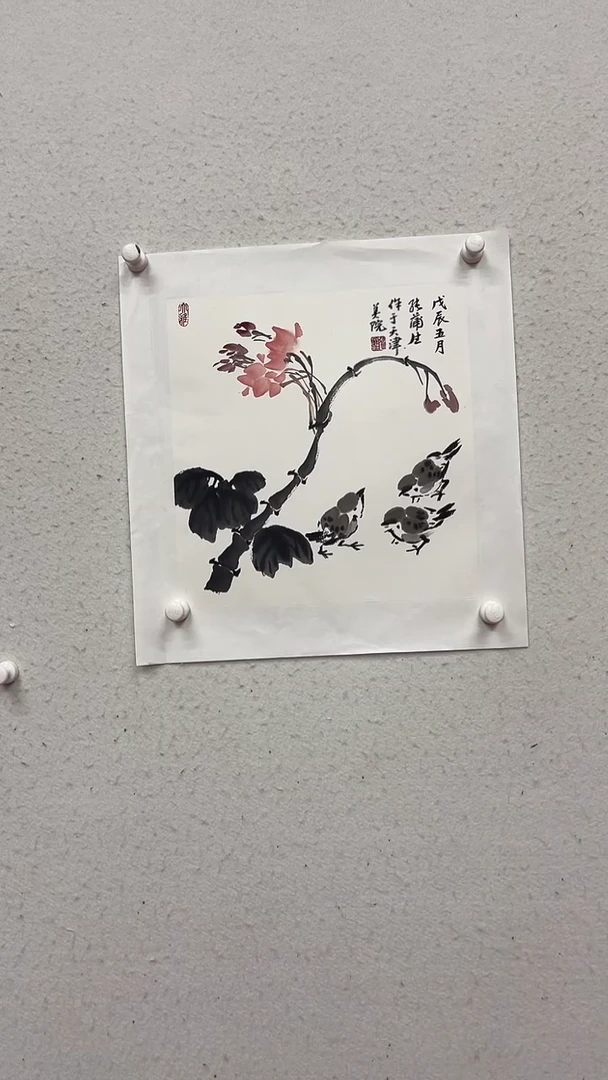 戊辰五月
张蒲生
作于天津
美院